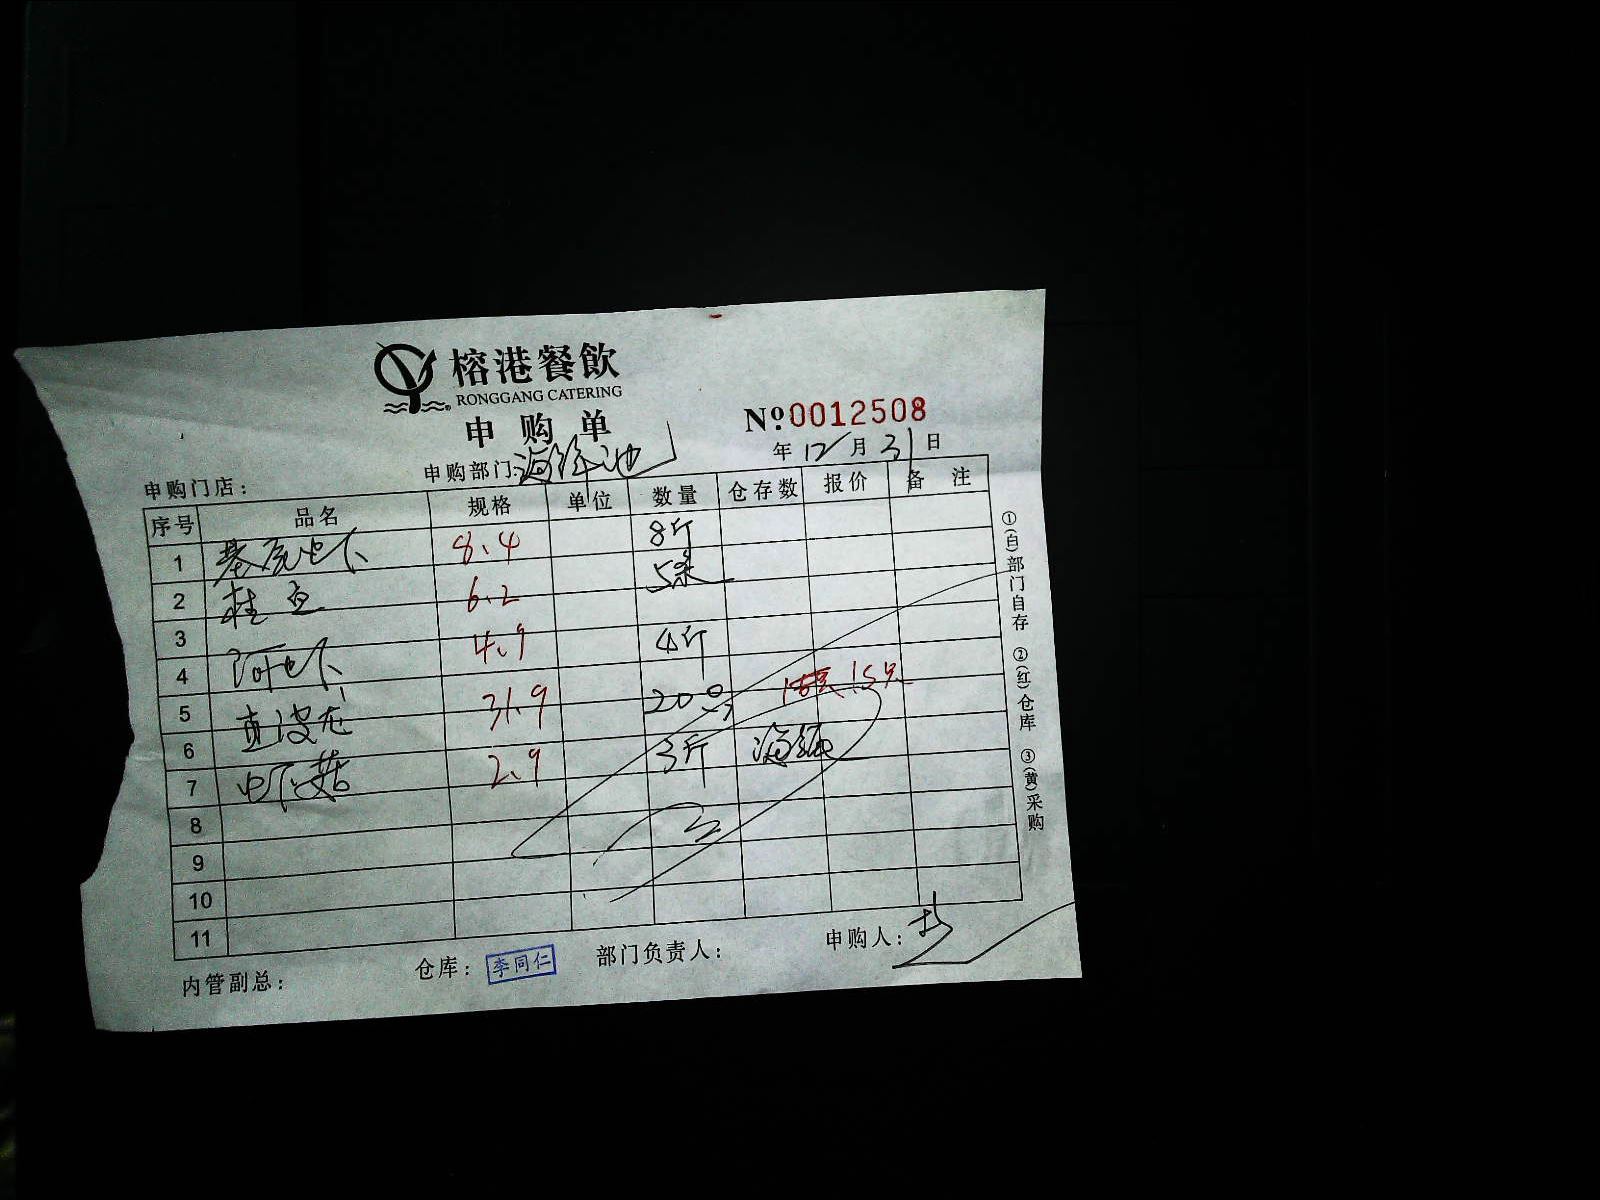 榕港餐飲
RONGGANG CATERING
申购单
№0012508
申购门店： 申购部门：海鲜池 年 12 月 31 日
序号 品名 规格 单位 数量 仓存数 报价 备注
1 基尾虾 8.4 8斤
2 桂鱼 6.2 5条
3
4 阿虾 4.9 4斤
5 波龙 31.9 20只 15只
6
7 虾菇 2.9 3斤
8
9
10
11
①(白)部门自存 ②(红)仓库 ③(黄)采购
内管副总： 仓库：李同仁 部门负责人： 申购人：